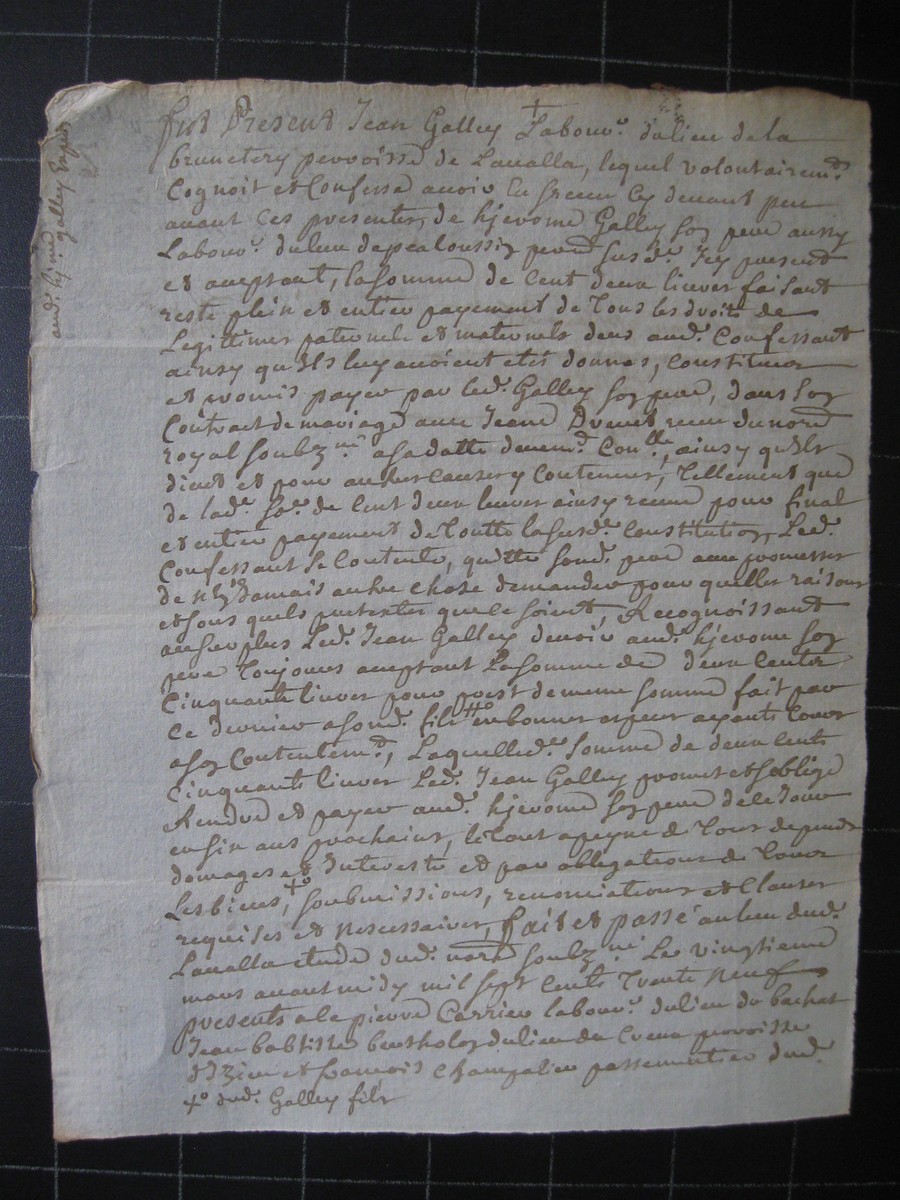 fut Present Jean Galley Labour. du lieu de la
brunettery parroisse de Laualla, lequel volontairemt.
Cognoit et Confesse auoir Eu et receu Cy deuant peu
auant Ces presentes, de hjerome Galley son pere aussy
Labour. du lieu de pealoussin parr susd. Jcy present
et acceptant, la somme de Cent deux liures faisant
reste plein et entier payement de Tous les droits de
Legittimes paternels et maternels deus aud. Confessant
ainsy qu'Ils luy auoient etés donnes, Constitues
et promis payer par led. Galley son pere, dans son
Contract de mariage auec Jeanne receu du nore
royal soubzné a sa datte deuemt. Conllé, ainsy qu'Ils
disent et pour autres causes y Contenues, Tellement que
de lad. so. de Cent deux liures ainsy receue pour final
et entier payement de Toutte la susd. Constitution, Led.
Confessant se Contente, quitte sond. pere auec promesses
de n'en Jamais autre chose demander pour quelles raisons
et sous quels pretextes que ce soient, Recognoissant
au surplus Led. Jean Galley deuoir aud. hjerome son
pere Toujours acceptant La somme de deux Cents
Cinquante liures pour prest de meme somme fait par
Ce dernier a sond. fils en bonnes especes ayants Cours
a son Contentemt, Laquelle de. somme de deux Cents
Cinquante liures Led. Jean Galley promet et s'oblige
Rendre et payer aud. hjerome son pere de Ce Jour
en six ans prochains, le Tout a peyne de Tous depends
domages et Interests et par obligations de Tous
Les biens, +o soubmissions, renonciations et Clauses
requises et nescessaires, fait et passé au lieu dud.
Laualla etude dud. nore soubzné Le vingtieme
mars auant midy mil sept Cents Trente Neuf
presents a Ce pierre Carrier labour. du lieu du bachat
Jean babtiste bertholon du lieu du Creux parroisse
d'Izieu et francois Champalier passementier dud.
+o dud. Galley fils
aud. hjme galley Exped.